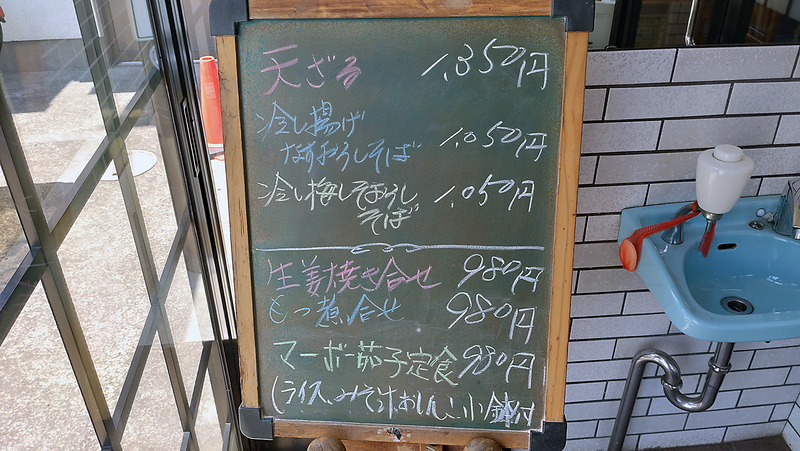 天ざる 1,350円
冷し揚げ
なすおろしそば 1,050円
冷し梅しそおろし
そば 1,050円
生姜焼き合せ 980円
もつ煮合せ 980円
マーボー茄子定食 980円
(ライス、みそ汁、おしんこ、小鉢付